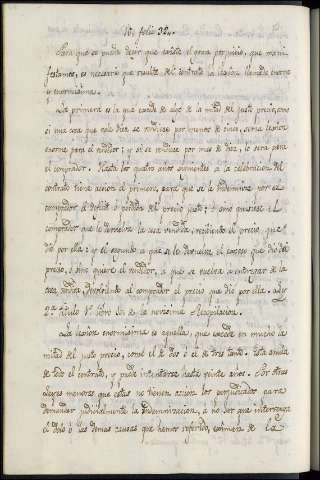 N. folio 324.
Para que se pueda decir que existe el grave perjuicio, que mani-
festamos, es necesario que resulte del contrato la lesion llamada enorme
y enormisima.
La primera es la que excede de algo de la mitad del justo precio, como
si una cosa que vale diez se vendiese por menos de cinco, seria lesion
enorme para el vendedor; y si se vendiese por mas de diez, lo seria para
el comprador. Hasta los quatro años siguientes a la celebracion del
contrato tiene accion el primero, para que se le indemnice por el
comprador el deficit ó perdida del precio justo; ó sino quisiese el
comprador que le devuelva la cosa vendida, recibiendo el precio, que
dió por ella: y el segundo á que se le devuelva el exceso que dió del
precio, ó sino quiere el vendedor, a que se vuelva a entregar de la
cosa vendida devolviendo al comprador el precio que dió por ella. Ley
2ª titulo 1º libro 10 de la novisima Recopilacion.
La lesion enormisima es aquella, que excede en mucho la
mitad del justo precio, como el de dos ó el de tres tanto. Esta anula
de todo el contrato, y puede intentarse hasta veinte años. Por otras
lesiones menores que estas no tienen accion los perjudicados para
demandar judicialmente la indemnizacion, a no ser que intervenga
el dolo ó las demas causas que hemos referido,